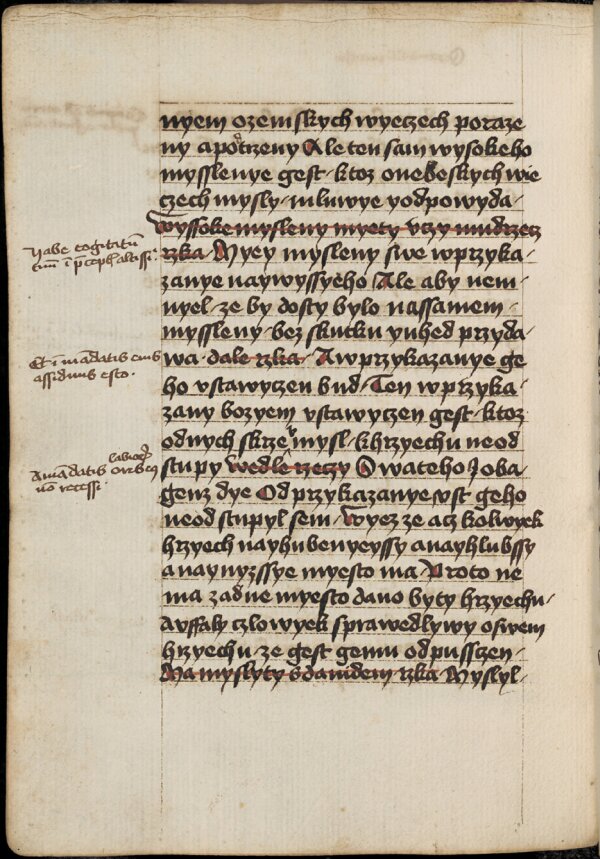 nyem ozemskych wyeczech poraze
ny a potrzeny Ale ten sam wysokeho
mysslenye gest ktoz onebeskych wie
czech mysly mluwye yodpowyda
wyssoke mysleny myety vczy mudrzecz
rzka Myey mysleny swe wprzyka
zanye naywyssyeho Ale aby nem
nyel ze by dosty bylo nassamem
myssleny bez skutku yuhed przyda
wa dale rzka A wprzykazanye ge
ho vstawyczen bud Ten wprzyka
zany bozyem vstawyczen gest ktoz
odnych skrze mysl khrzyechu neod
stupy wedle rzeczy Swateho Joba
genz dye Od przykazanye vst geho
neodstupyl sem wyez ze acz kolwyek
hrzyech nayhubenyeyssy a nayhlubssy
a naynyzssye myesto ma Proto ne
ma zadne myesto dano byty hrzyechu
Auffaly czlowyek sprawedlywy oswem
hrzyechu ze gest gemu odpusstzen
Ma myslyty sdawidem rzka Myslyl
Habe cogitatū
tuū ī p̄ceptꝭ altissī
Et ī mādatis eius
assiduus esto
A mādatis labiorꝝ
nō recessi